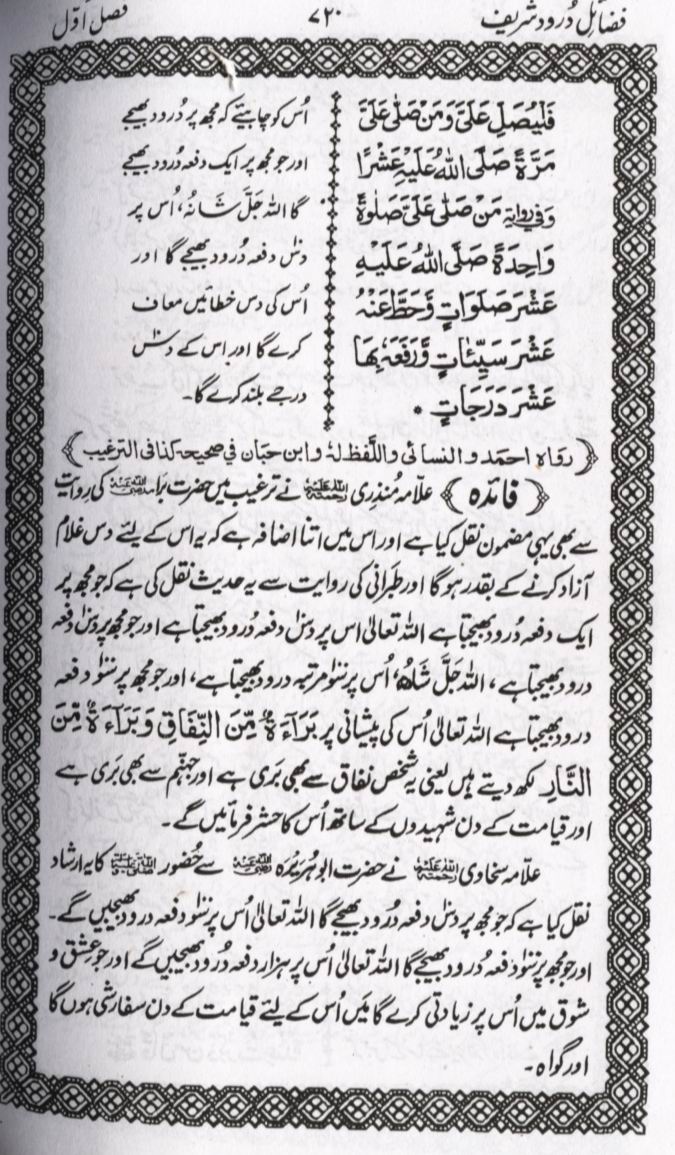 فضائل دُرود شریف ۷۲۰ فصل اوّل
فَلْيُصَلِّ عَلَيَّ وَمَنْ صَلّٰى عَلَيَّ
مَرَّةً صَلَّى اللهُ عَلَيْهِ عَشْرًا
وَفِي رِوَايَةٍ مَنْ صَلّٰى عَلَيَّ صَلٰوةً
وَاحِدَةً صَلَّى اللهُ عَلَيْهِ
عَشْرَ صَلَوَاتٍ وَّحَطَّ عَنْهُ
عَشْرَ سَيِّئَاتٍ وَّرَفَعَهٗ بِهَا
عَشْرَ دَرَجَاتٍ *
اُس کو چاہیئے کہ مجھ پر دُرود بھیجے
اور جو مجھ پر ایک دفعہ دُرود بھیجے
گا اللہ جَلَّ شَانُہٗ، اُس پر
دسؔ دفعہ دُرود بھیجے گا اور
اُس کی دس خطائیں معاف
کرے گا اور اس کے دسؔ
درجے بلند کرے گا۔
﴿ رواہ احمد و النسائی واللفظ لہٗ وابن حبان فی صحیحہ کذا فی الترغیب ﴾
﴿ فائدہ ﴾ علّامہ مُنذِری رحمۃ اللہ علیہ نے ترغیب میں حضرت براء رضی اللہ عنہ کی روایت
سے بھی یہی مضمون نقل کیا ہے اور اس میں اتنا اضافہ ہے کہ یہ اس کے لیئے دس غلام
آزاد کرنے کے بقدر ہوگا اور طَبرانی کی روایت سے یہ حدیث نقل کی ہے کہ جو مجھ پر
ایک دفعہ دُرود بھیجتا ہے اللہ تعالیٰ اس پر دسؔ دفعہ درود بھیجتا ہے اور جو مجھ پر دسؔ دفعہ
درود بھیجتا ہے، اللہ جَلَّ شَانُہٗ، اُس پر سَو مرتبہ درود بھیجتا ہے، اور جو مجھ پر سَو دفعہ
درود بھیجتا ہے اللہ تعالیٰ اُس کی پیشانی پر بَرَآءَةٌ مِّنَ النِّفَاقِ وَبَرَآءَةٌ مِّنَ
النَّارِ لکھ دیتے ہیں یعنی یہ شخص نفاق سے بھی بَری ہے اور جہنّم سے بھی بَری ہے
اور قیامت کے دن شہیدوں کے ساتھ اُس کا حشر فرمائیں گے۔
علّامہ سخاوی رحمۃ اللہ علیہ نے حضرت ابوہُریرَہ رضی اللہ عنہ سے حُضور صلی اللہ علیہ وسلم کا یہ ارشاد
نقل کیا ہے کہ جو مجھ پر دسؔ دفعہ دُرود بھیجے گا اللہ تعالیٰ اُس پر سَو دفعہ درود بھیجیں گے۔
اور جو مجھ پر سَو دفعہ دُرود بھیجے گا اللہ تعالیٰ اُس پر ہزار دفعہ دُرود بھیجیں گے اور جو عِشق و
شوق میں اُس پر زیادتی کرے گا مَیں اُس کے لیئے قیامت کے دن سفارشی ہوں گا
اور گواہ۔